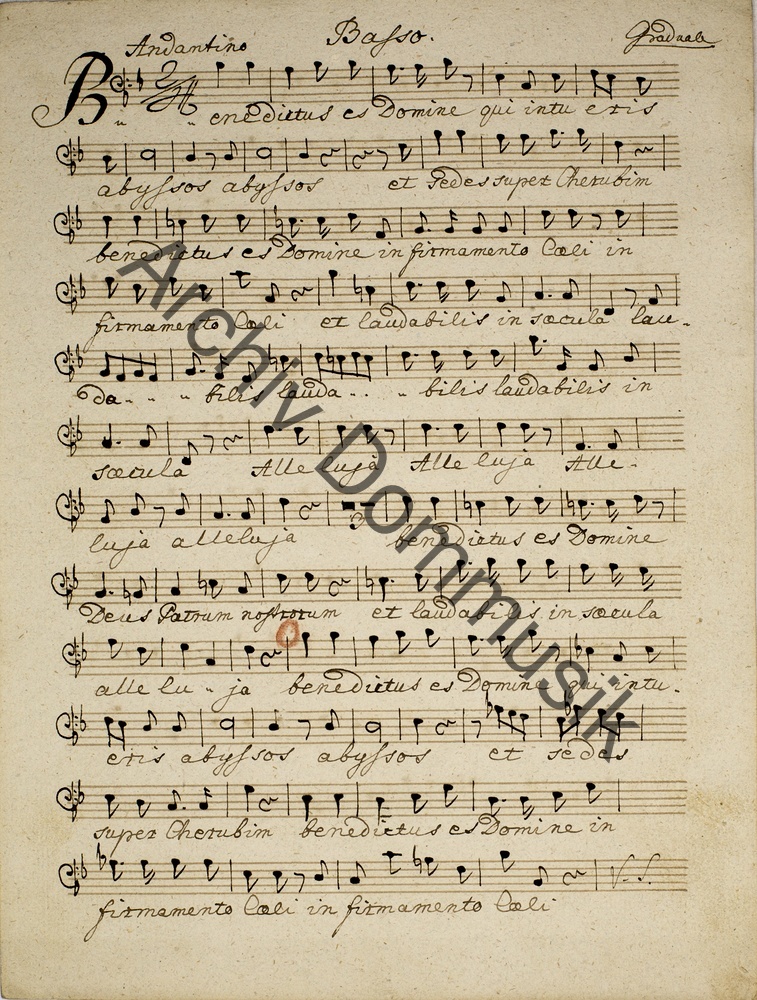 Andantino Basso. Graduale
Benedictus es Domine qui intu eris
abyssos abyssos et sedes super Cherubim
benedictus es Domine in firmamento Cœli in
firmamento Cœli et laudabilis in sœcula lau-
da - - - bilis lauda - - - bilis laudabilis in
sœcula Alleluja Alleluja Alle-
luja alleluja 3 benedictus es Domine
Deus Patrum nostrorum et laudabilis in sœcula
allelu - ja benedictus es Domine qui intu-
eris abyssos abyssos et sedes
super Cherubim benedictus es Domine in
firmamento Cœli in firmamento Cœli
V. S.
Archiv Dommusik